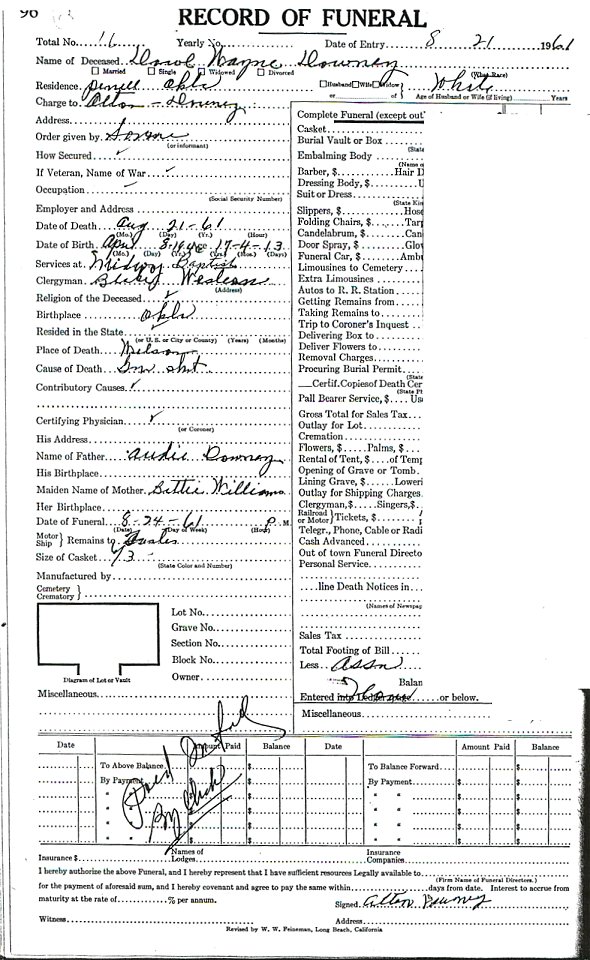 96
RECORD OF FUNERAL
Total No. 16 Yearly No. Date of Entry 8 21 1961
Name of Deceased Wayne Downey
Married Single Widowed Divorced (What Race)
Residence Okla Husband Wife Widow White
or of Age of Husband or Wife (if living) Years
Charge to Alton Downey
Address
Order given by Same
(or informant)
How Secured ✓
If Veteran, Name of War ✓
Occupation ✓
(Social Security Number)
Employer and Address
Date of Death Aug 21-61
(Mo.) (Day) (Yr.) (Hour)
Date of Birth April 8-1944 Age 17-4-13
(Mo.) (Day) (Yr.) (Yrs.) (Mos.) (Days)
Services at Midway Baptist
Clergyman
(Address)
Religion of the Deceased ✓
Birthplace Okla
Resided in the State
(or U. S. or City or County) (Years) (Months)
Place of Death Wilson
Cause of Death Gun shot
Contributory Causes ✓
Certifying Physician ✓
(or Coroner)
His Address
Name of Father Audie Downey
His Birthplace
Maiden Name of Mother Bettie Williams
Her Birthplace
Date of Funeral 8-24-61 P. M.
(Date) (Day of Week) (Hour)
Motor Ship } Remains to
Size of Casket 6/3
(State Color and Number)
Manufactured by
Cemetery Crematory }
Lot No.
Grave No.
Section No.
Block No.
Owner
Diagram of Lot or Vault
Miscellaneous
Complete Funeral (except out
Casket
Burial Vault or Box
(State
Embalming Body
(Name o
Barber, $ Hair D
Dressing Body, $ U
Suit or Dress
(State Kin
Slippers, $ Hose
Folding Chairs, $ Tar
Candelabrum, $ Can
Door Spray, $ Glo
Funeral Car, $ Amb
Limousines to Cemetery
Extra Limousines
Autos to R. R. Station
Getting Remains from
Taking Remains to
Trip to Coroner's Inquest
Delivering Box to
Deliver Flowers to
Removal Charges
Procuring Burial Permit
(State
Certif. Copies of Death Cer
(State Pl
Pall Bearer Service, $ Us
Gross Total for Sales Tax
Outlay for Lot
Cremation
Flowers, $ Palms, $
Rental of Tent, $ of Temp
Opening of Grave or Tomb
Lining Grave, $ Loweri
Outlay for Shipping Charges
Clergyman, $ Singers, $
Railroad or Motor } Tickets, $
Telegr., Phone, Cable or Radi
Cash Advanced
Out of town Funeral Directo
Personal Service
line Death Notices in
(Names of Newspap
Sales Tax
Total Footing of Bill
Less Assn
Balan
Entered into Ledger or below.
Miscellaneous
Date Amount Paid Balance Date Amount Paid Balance
To Above Balance $ To Balance Forward $
By Payment $ By Payment $ $
" " $ " " $ $
" " $ " " $ $
" " $ " " $ $
" " $ " " $ $
Paid In full
By Check
Insurance $ Names of Lodges Insurance Companies
I hereby authorize the above Funeral, and I hereby represent that I have sufficient resources Legally available to
(Firm Name of Funeral Directors.)
for the payment of aforesaid sum, and I hereby covenant and agree to pay the same within days from date. Interest to accrue from
maturity at the rate of % per annum. Signed Alton Downey
Witness Address
Revised by W. W. Feineman, Long Beach, California